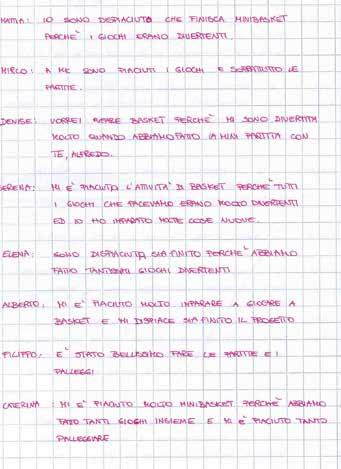 MATTIA: IO SONO DISPIACIUTO CHE FINISCA MINIBASKET
PERCHÈ I GIOCHI ERANO DIVERTENTI.
MIRCO: A ME SONO PIACIUTI I GIOCHI E SOPRATTUTTO LE
PARTITE.
DENISE: VORREI RIFARE BASKET PERCHÈ MI SONO DIVERTITA
MOLTO QUANDO ABBIAMO FATTO LA MINI PARTITA CON
TE, ALFREDO.
SERENA: MI È PIACIUTA L'ATTIVITÀ DI BASKET PERCHÈ TUTTI
I GIOCHI CHE FACEVAMO ERANO MOLTO DIVERTENTI
ED IO HO IMPARATO MOLTE COSE NUOVE.
ELENA: SONO DISPIACIUTA SIA FINITO PERCHÈ ABBIAMO
FATTO TANTISSIMI GIOCHI DIVERTENTI
ALBERTO: MI È PIACIUTO MOLTO IMPARARE A GIOCARE A
BASKET E MI DISPIACE SIA FINITO IL PROGETTO
FILIPPO: È STATO BELLISSIMO FARE LE PARTITE E I
PALLEGGI
CATERINA: MI È PIACIUTO MOLTO MINIBASKET PERCHÈ ABBIAMO
FATTO TANTI GIOCHI INSIEME E MI È PIACIUTO TANTO
PALLEGGIARE